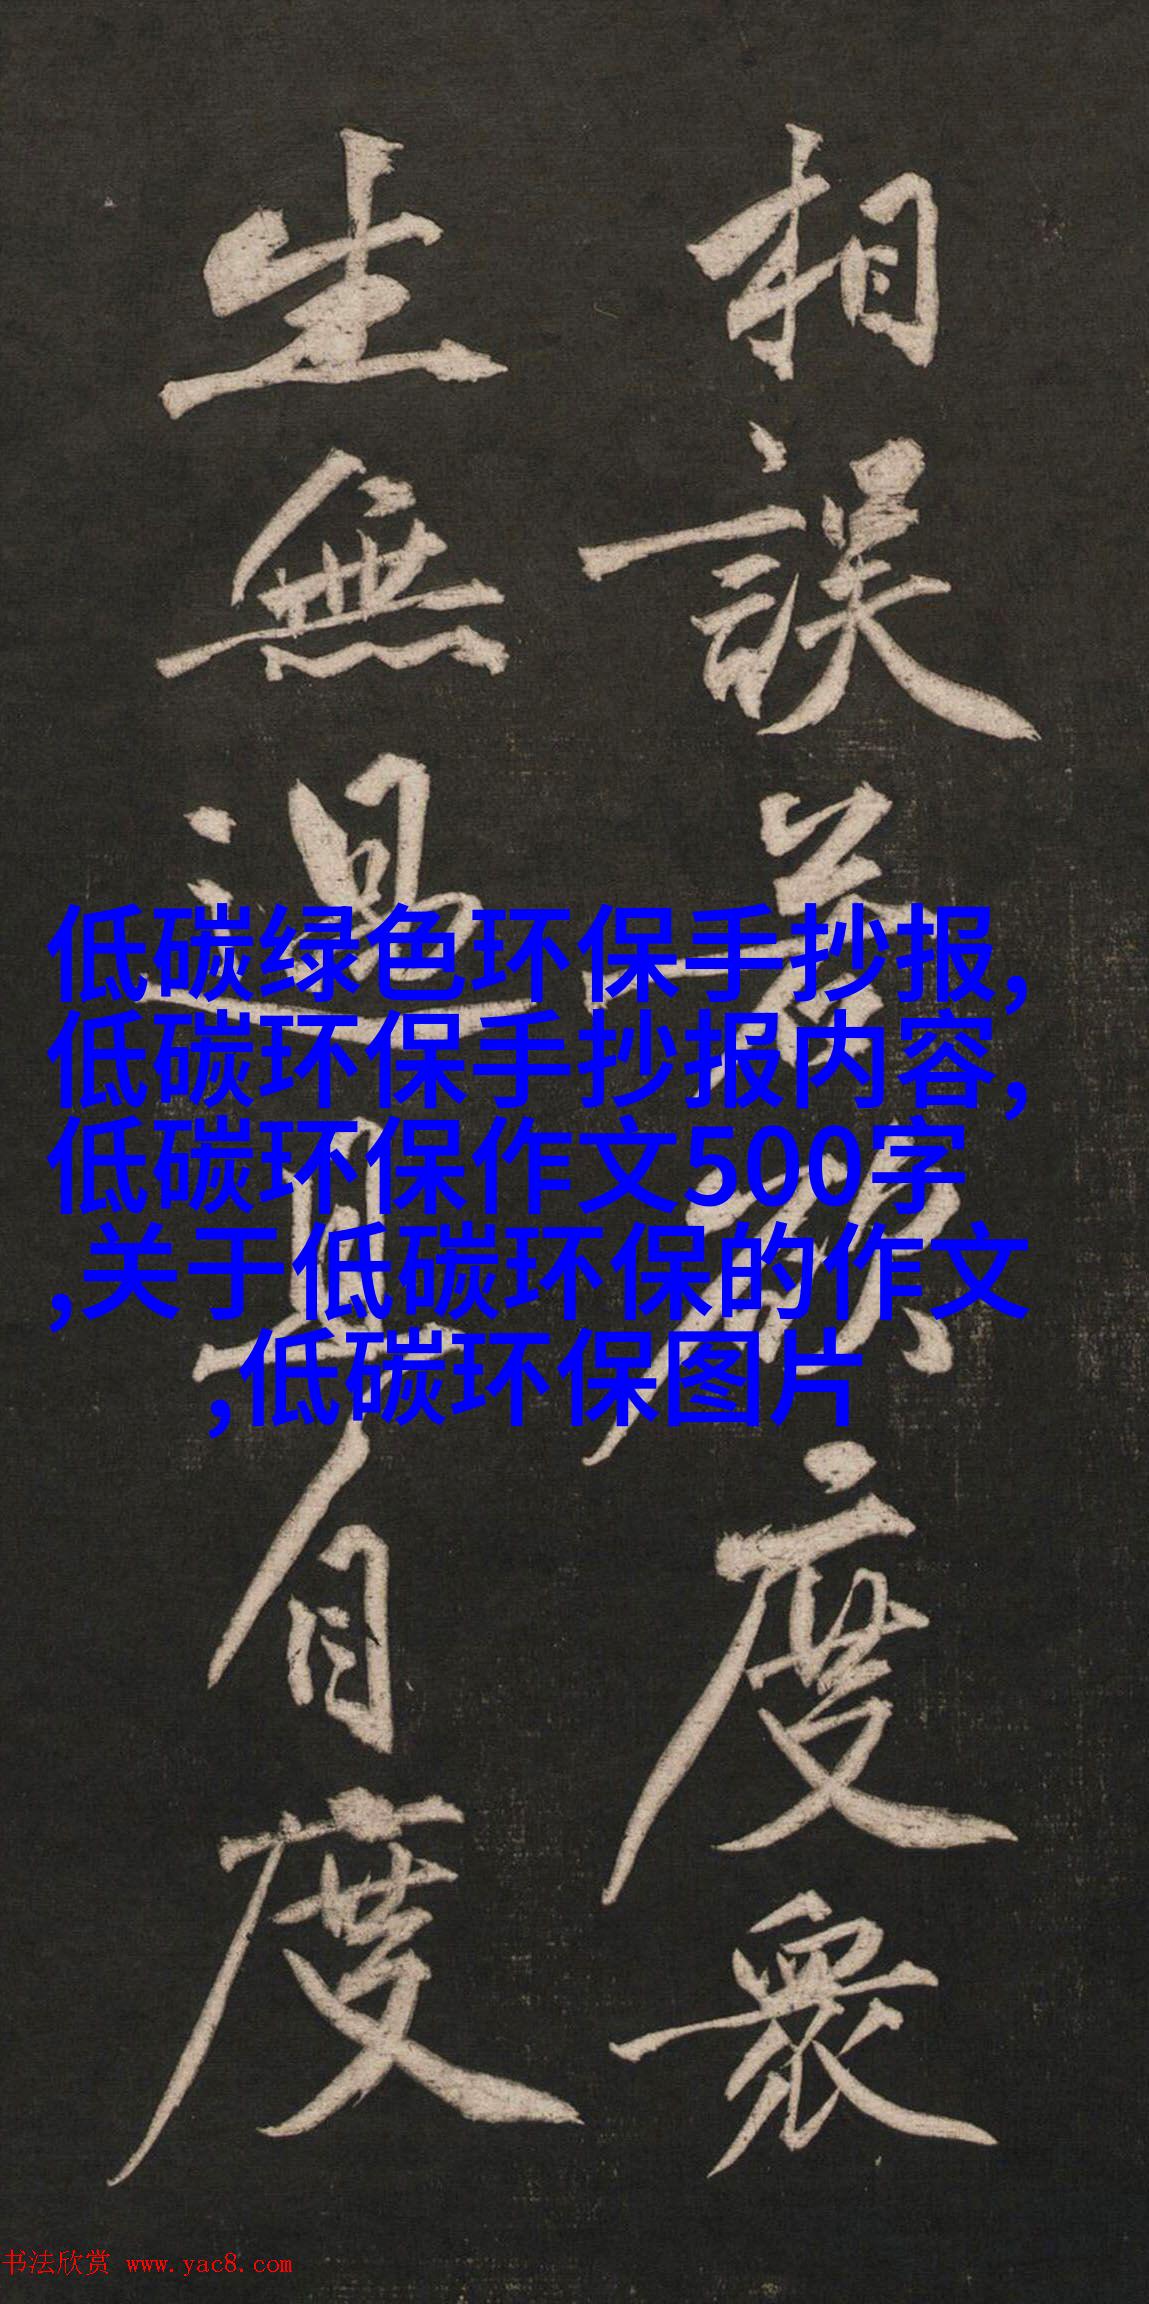 相誤若欲度衆
生無過且自度
低碳绿色环保手抄报,
低碳环保手抄报内容,
低碳环保作文500字
,关于低碳环保的作文
,低碳环保图片
书法欣赏 www.yac8.com